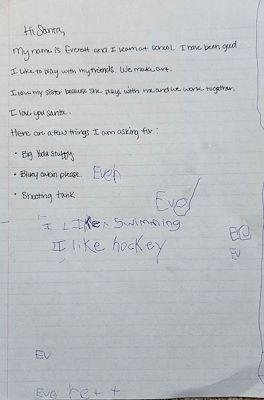 Hi Santa,
My name is Everett and I learn at school. I have been good
I like to play with my friends. We make art.
I love my sister because she plays with me and we work together.
I love you santa.
Here are a few things I am asking for:
• Big Yoda stuffy
• Bluey cabin please.
Eveh
• Shooting tank
Eve
I LIKe Swimming
I like hockey
Eve
Ev
Ev
Eve rett